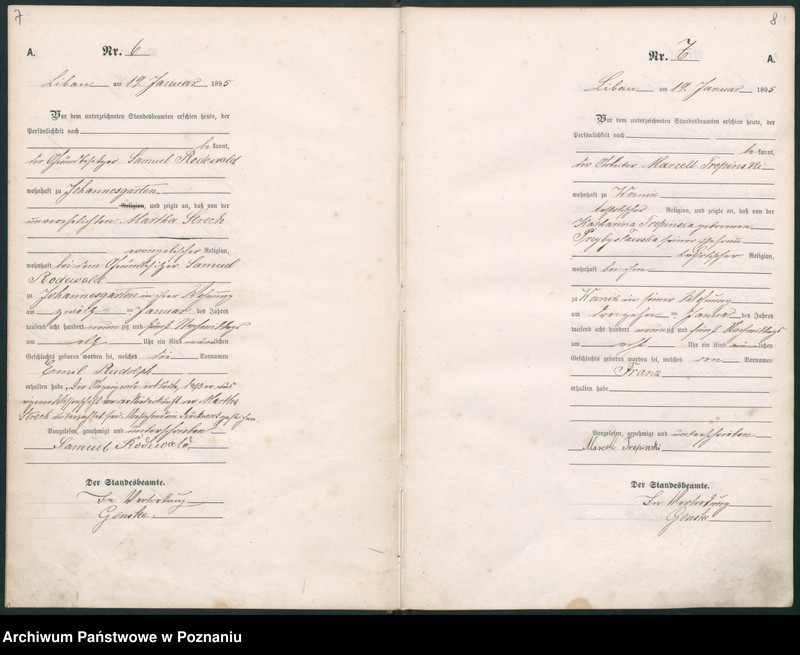 7
A.
Nr. 6
Libau am 19. Januar 1895
Vor dem unterzeichneten Standesbeamten erschien heute, der
Persönlichkeit nach
be kannt,
der Grundbesitzer Samuel Rodewald
wohnhaft zu Johannesgarten
Religion, und zeigte an, daß von der
unverehelichten Martha
evangelischer Religion,
wohnhaft bei dem Grundbesitzer Samuel
Rodewald
zu Johannesgarten in ihrer Wohnung
am zwölf ten Januar des Jahres
tausend acht hundert neunzig und fünf Vormittags
um elf Uhr ein Kind männlichen
Geschlechts geboren worden sei, welches die Vornamen
Emil Rudolph
erhalten habe. Der Anzeigende erklärte, daß er aus
eigener Wissenschaft von der Niederkunft der Martha
Vorgelesen, genehmigt und unterschrieben
Samuel Rodewald
Der Standesbeamte.
In Vertretung
8
Nr. 7
A.
Libau am 19. Januar 1895
Vor dem unterzeichneten Standesbeamten erschien heute, der
Persönlichkeit nach
be kannt,
der Marcell
wohnhaft zu
katholischer Religion, und zeigte an, daß von der
Katharina geborenen
Przybyszewska seiner Ehefrau
katholischer Religion,
wohnhaft bei ihm
zu in seiner Wohnung
am dreizehn ten Januar des Jahres
tausend acht hundert neunzig und fünf
um acht Uhr ein Kind männlichen
Geschlechts geboren worden sei, welches den Vornamen
Franz
erhalten habe
Vorgelesen, genehmigt und unterschrieben
Marcell
Der Standesbeamte.
In Vertretung
Archiwum Państwowe w Poznaniu